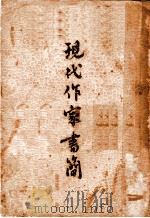 現代作家書簡